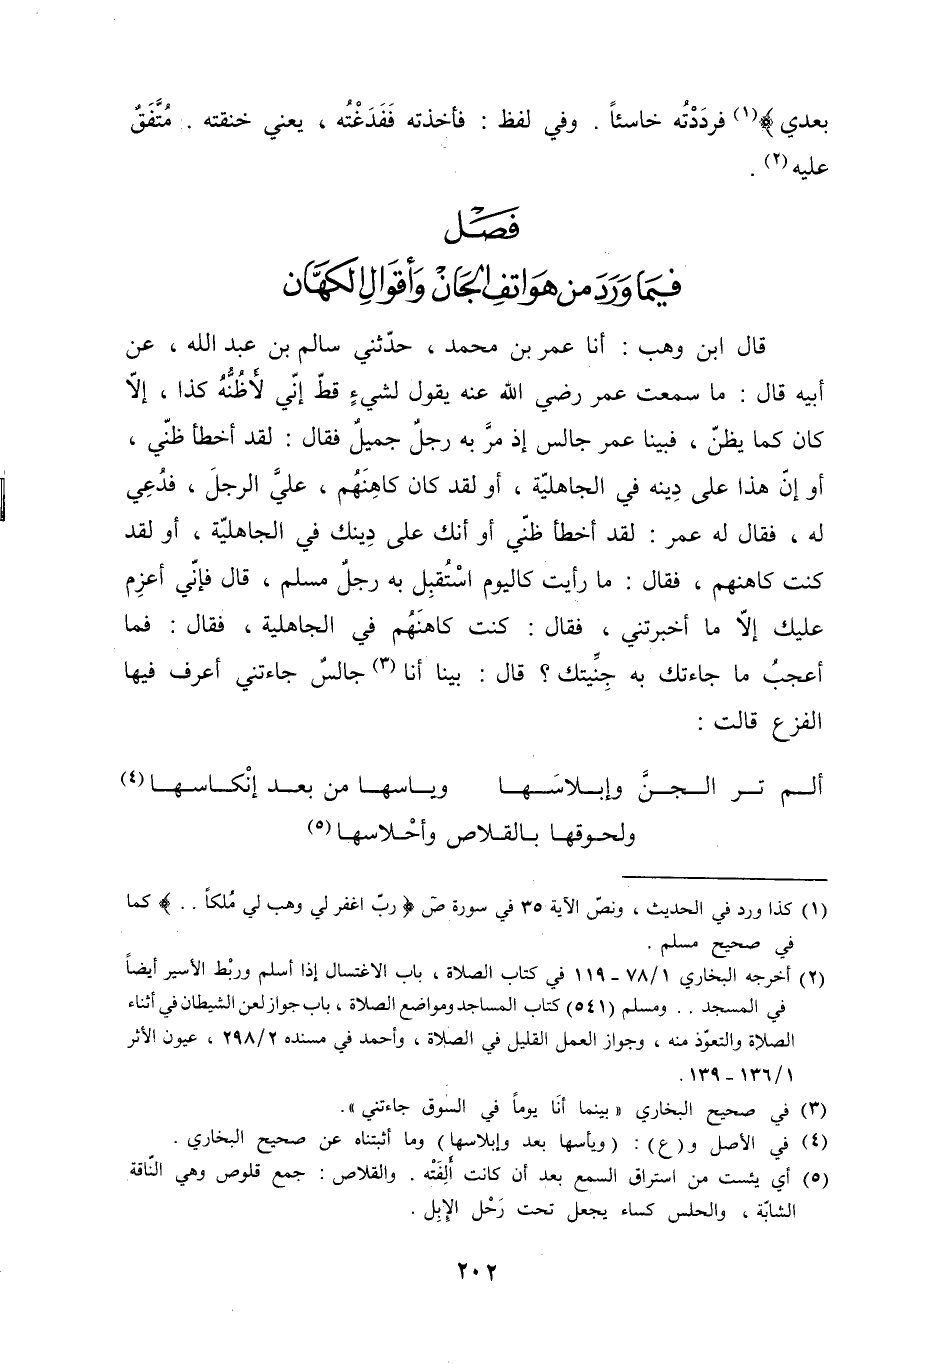 بعدي ﴾(١) فردَدْتُه خاسئاً . وفي لفظ : فأخذته فَفَدَغْتُه ، يعني خنقته . مُتَّفَقٌ
عليه(٢) .
فصَل
فيمَا وَرَدَ من هوَاتف الجَانّ وَأقوَال الكهَّان
قال ابن وهب : أنا عمر بن محمد ، حدّثني سالم بن عبد الله ، عن
أبيه قال : ما سمعت عمر رضي الله عنه يقول لشيءٍ قطّ إنّي لَأَظُنُّهُ كذا ، إلاّ
كان كما يظنّ ، فبينا عمر جالس إذ مرَّ به رجلٌ جميلٌ فقال : لقد أخطأ ظنّي ،
أو إنّ هذا على دِينه في الجاهليّة ، أو لقد كان كاهِنَهُم ، عليَّ الرجلَ ، فدُعِي
له ، فقال له عمر : لقد أخطأ ظنّي أو أنك على دِينك في الجاهليّة ، أو لقد
كنت كاهنهم ، فقال : ما رأيت كاليوم اسْتُقبِل به رجلٌ مسلم ، قال فإنّي أعزِم
عليك إلاّ ما أخبرتني ، فقال : كنت كاهنَهُم في الجاهلية ، فقال : فما
أعجبُ ما جاءتك به جِنِّيتك ؟ قال : بينا أنا(٣) جالسٌ جاءتني أعرف فيها
الفزع قالت :
ألـم تـر الـجـنَّ وإبـلاسَـهـا ويـاسـهـا من بـعـد إنْكـاسـهـا(٤)
ولحوقـهـا بـالقـلاص وأحْـلاسـهـا(٥)
(١) كذا ورد في الحديث ، ونصّ الآية ٣٥ في سورة صَ ﴿ ربّ اغفر لي وهب لي مُلكاً . . ﴾ كما
في صحيح مسلم .
(٢) أخرجه البخاري ٧٨/١ ـ ١١٩ في كتاب الصلاة ، باب الاغتسال إذا أسلم وربْط الأسير أيضاً
في المسجد . . ومسلم (٥٤١) كتاب المساجد ومواضع الصلاة ، باب جواز لعن الشيطان في أثناء
الصلاة والتعوّذ منه ، وجواز العمل القليل في الصلاة ، وأحمد في مسنده ٢٩٨/٢ ، عيون الأثر
١٣٦/١ ـ ١٣٩ .
(٣) في صحيح البخاري « بينما أنَا يوماً في السوق جاءتني ».
(٤) في الأصل و(ع) : (ويأسها بعد وإبلاسها) وما أثبتناه عن صحيح البخاري .
(٥) أي يئست من استراق السمع بعد أن كانت أَلِفَتْه . والقلاص : جمع قلوص وهي النّاقة
الشابّة ، والحلس كساء يجعل تحت رَحْل الإبِل .
٢٠٢